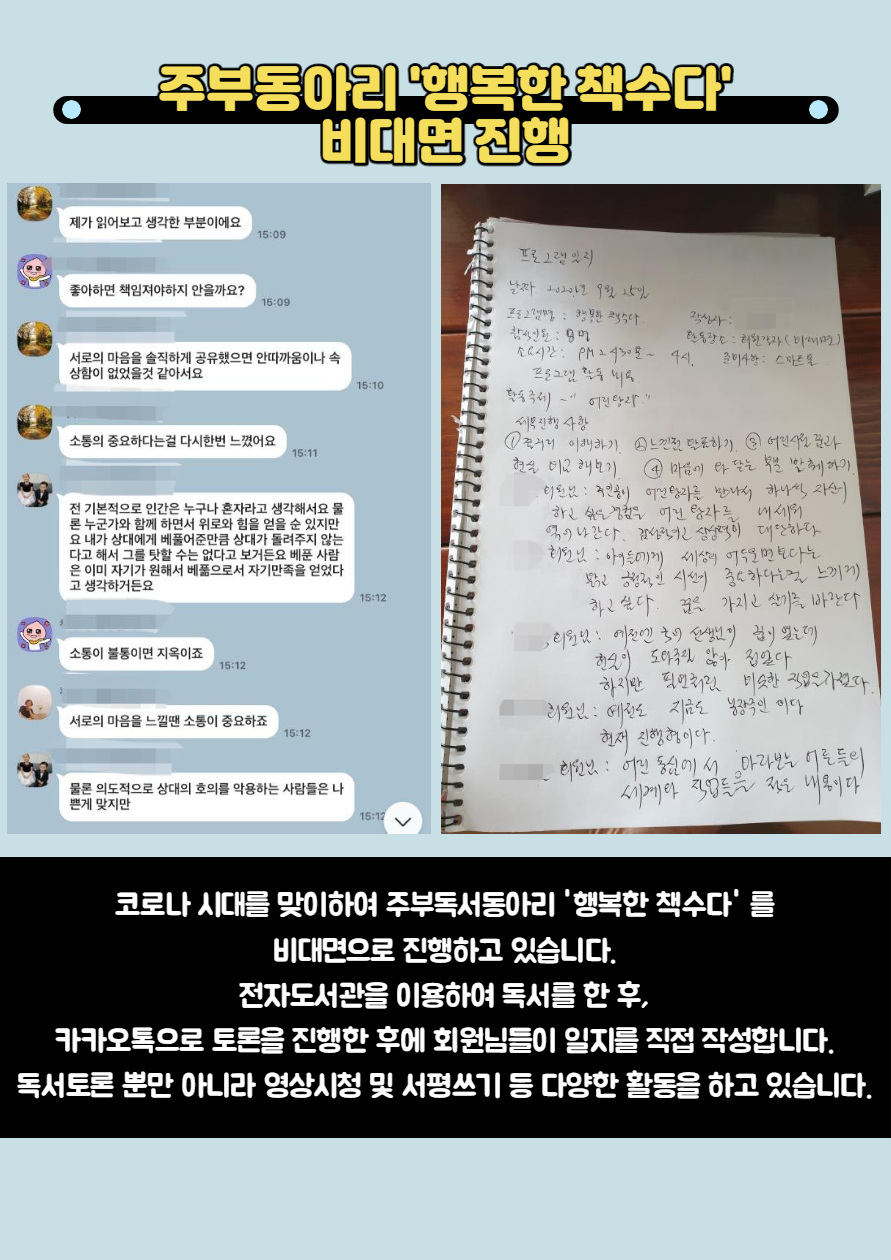 주부동아리 '행복한 책수다'
비대면 진행
제가 읽어보고 생각한 부분이에요
15:09
좋아하면 책임져야하지 안을까요?
15:09
서로의 마음을 솔직하게 공유했으면 안따까움이나 속
상함이 없었을것 같아서요
15:10
소통의 중요하다는걸 다시한번 느꼈어요
15:11
전 기본적으로 인간은 누구나 혼자라고 생각해서요 물
론 누군가와 함께 하면서 위로와 힘을 얻을 순 있지만
요 내가 상대에게 베풀어준만큼 상대가 돌려주지 않는
다고 해서 그를 탓할 수는 없다고 보거든요 베푼 사람
은 이미 자기가 원해서 베풂으로서 자기만족을 얻었다
고 생각하거든요
15:12
소통이 불통이면 지옥이죠
15:12
서로의 마음을 느낄땐 소통이 중요하죠
15:12
물론 의도적으로 상대의 호의를 악용하는 사람들은 나
쁜게 맞지만
15:12
프로그램일지
날짜 2020년 9월 25일
프로그램명 : 행복한 책수다 작성자 :
참석인원 : 8명 활동장소 : 회원각자(비대면)
소요시간 : PM 2시30분~ 4시. 준비사항 : 스마트폰
프로그램 활동 내용
활동주제 ~ " 어린왕자 "
세부진행 사항
① 줄거리 이해하기. ② 느낀점 발표하기. ③ 어린시절 꿈과
현실 비교 해보기. ④ 마음에 와 닿는 부분 발췌하기.
회원님 : 주인공이 어린왕자를 만나서 하나씩 자신이
하고 싶은 경험을 어린 왕자를 내세워
엮어나간다. 감성적이고 상상력이 대단하다
회원님 : 아이들에게 세상의 어두운면보다는
밝고 긍정적인 시선이 중요하다는걸 느끼게
하고 싶다. 꿈을 가지고 살기를 바란다
회원님 : 예전엔 국어 선생님이 꿈이 었는데
현실이 도와주질 않아 접었다
하지만 필연처럼 비슷한 직업을가졌다.
회원님 : 예전도 지금도 이다
현재 진행형이다.
회원님 : 어린 동심에서 바라보는 어른들의
세계와 직업들을 적은 내용이다
코로나 시대를 맞이하여 주부독서동아리 '행복한 책수다' 를
비대면으로 진행하고 있습니다.
전자도서관을 이용하여 독서를 한 후,
카카오톡으로 토론을 진행한 후에 회원님들이 일지를 직접 작성합니다.
독서토론 뿐만 아니라 영상시청 및 서평쓰기 등 다양한 활동을 하고 있습니다.